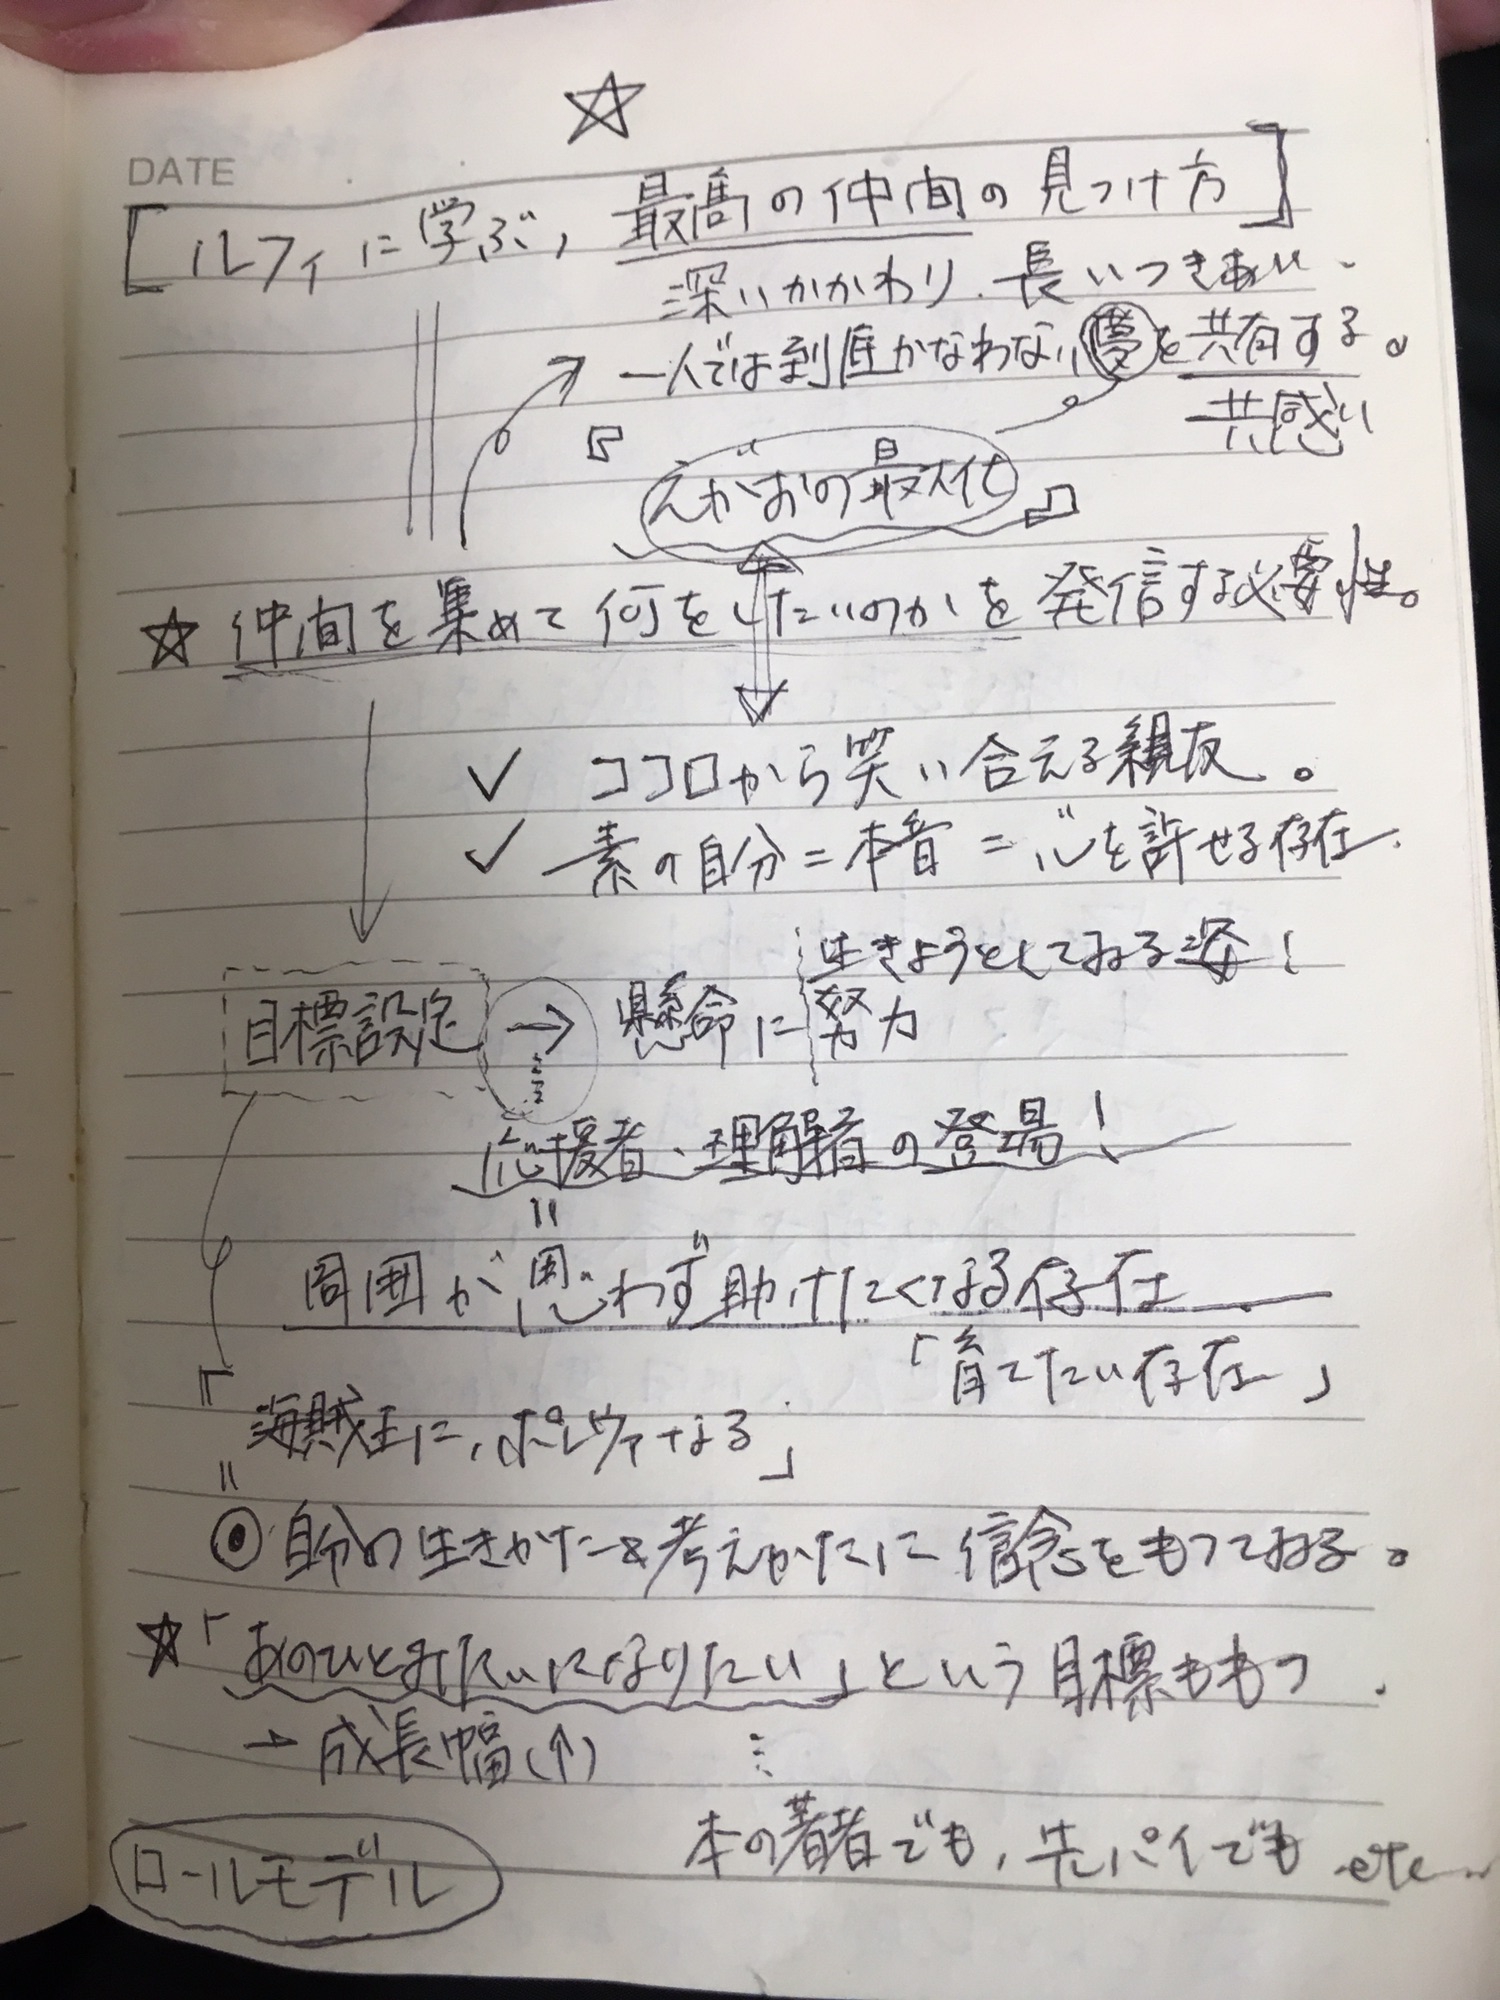 ☆
DATE
[ルフィに学ぶ, 最高の仲間の見つけ方]
深いかかわり. 長いつきあい.
一人では到底かなわない夢を共有する。
共感い
「えがおの最大化」
☆ 仲間を集めて何をしたいのかを発信する必要性。
✓ ココロから笑い合える親友。
✓ 素の自分=本音=心を許せる存在.
生きようとしておる姿!
目標設定 → 懸命に 努力
応援者、理解者の登場!
=
周囲が思わず助けたくなる存在
「育てたい存在」
「海賊王に,
=
◎ 自分の生きかた&考えかたに信念をもっておる。
☆「あのひとみたいになりたい」という目標ももつ.
→ 成長幅(↑)
本の著者でも, 先パイでも etc
ロールモデル